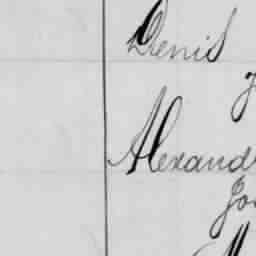 Denis
Alexand
Jo